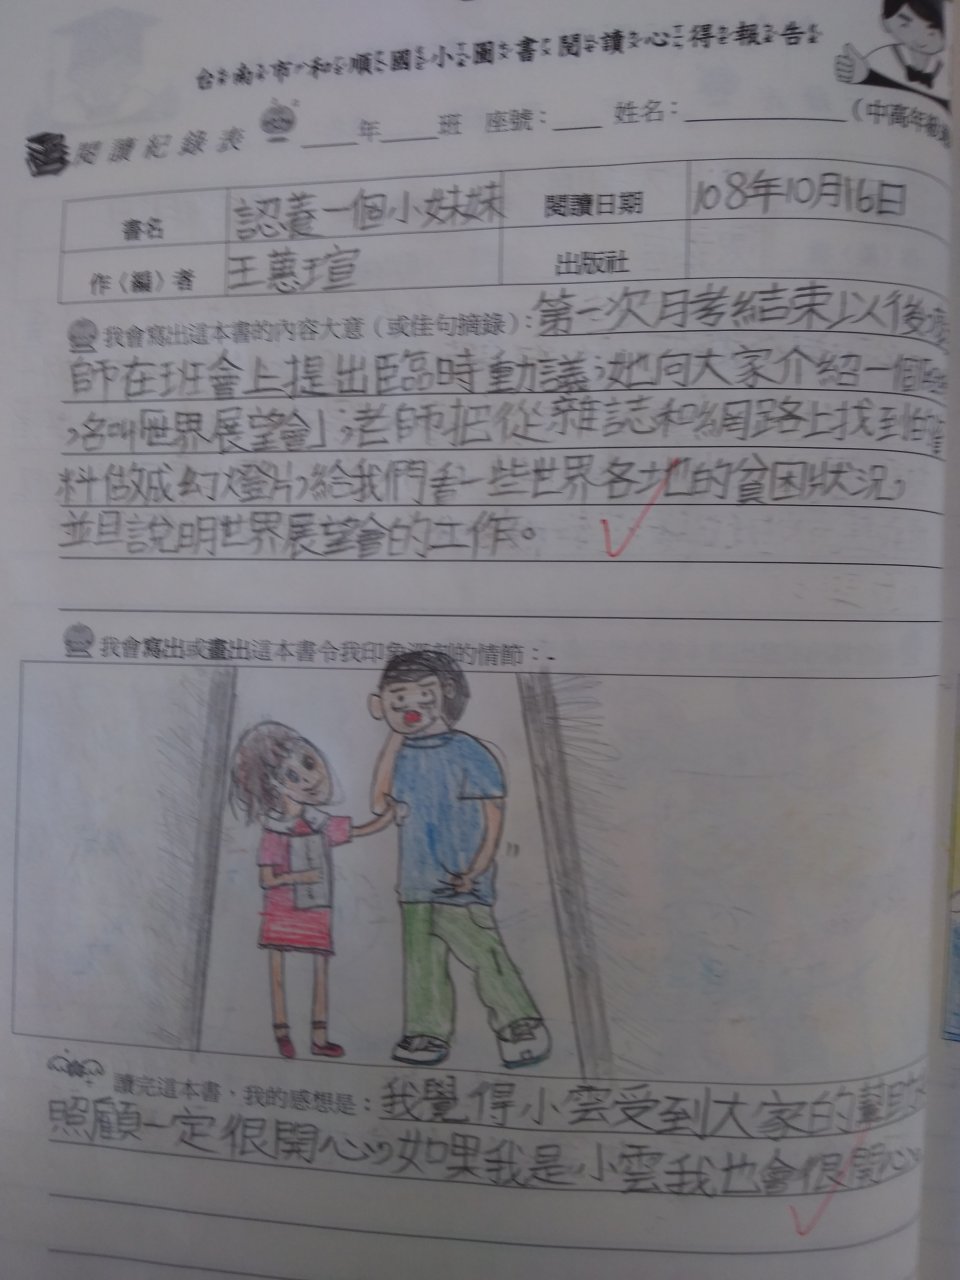 台南市和順國小圖書閱讀心得報告
閱讀紀錄表 ____年____班 座號：____ 姓名：__________（中高年級
書名 認養一個小妹妹 閱讀日期 108年10月16日
作（編）者 王蕙瑄 出版社
我會寫出這本書的內容大意（或佳句摘錄）：第一次月考結束以後，
師在班會上提出臨時動議；她向大家介紹一個
，名叫「世界展望會」；老師把從雜誌和網路上找到的
料做成幻燈片，給我們看一些世界各地的貧困狀況，
並且說明世界展望會的工作。
我會寫出或畫出這本書令我印象深刻的情節：
讀完這本書，我的感想是：我覺得小雲受到大家的幫助
照顧一定很開心，如果我是小雲我也會很開心